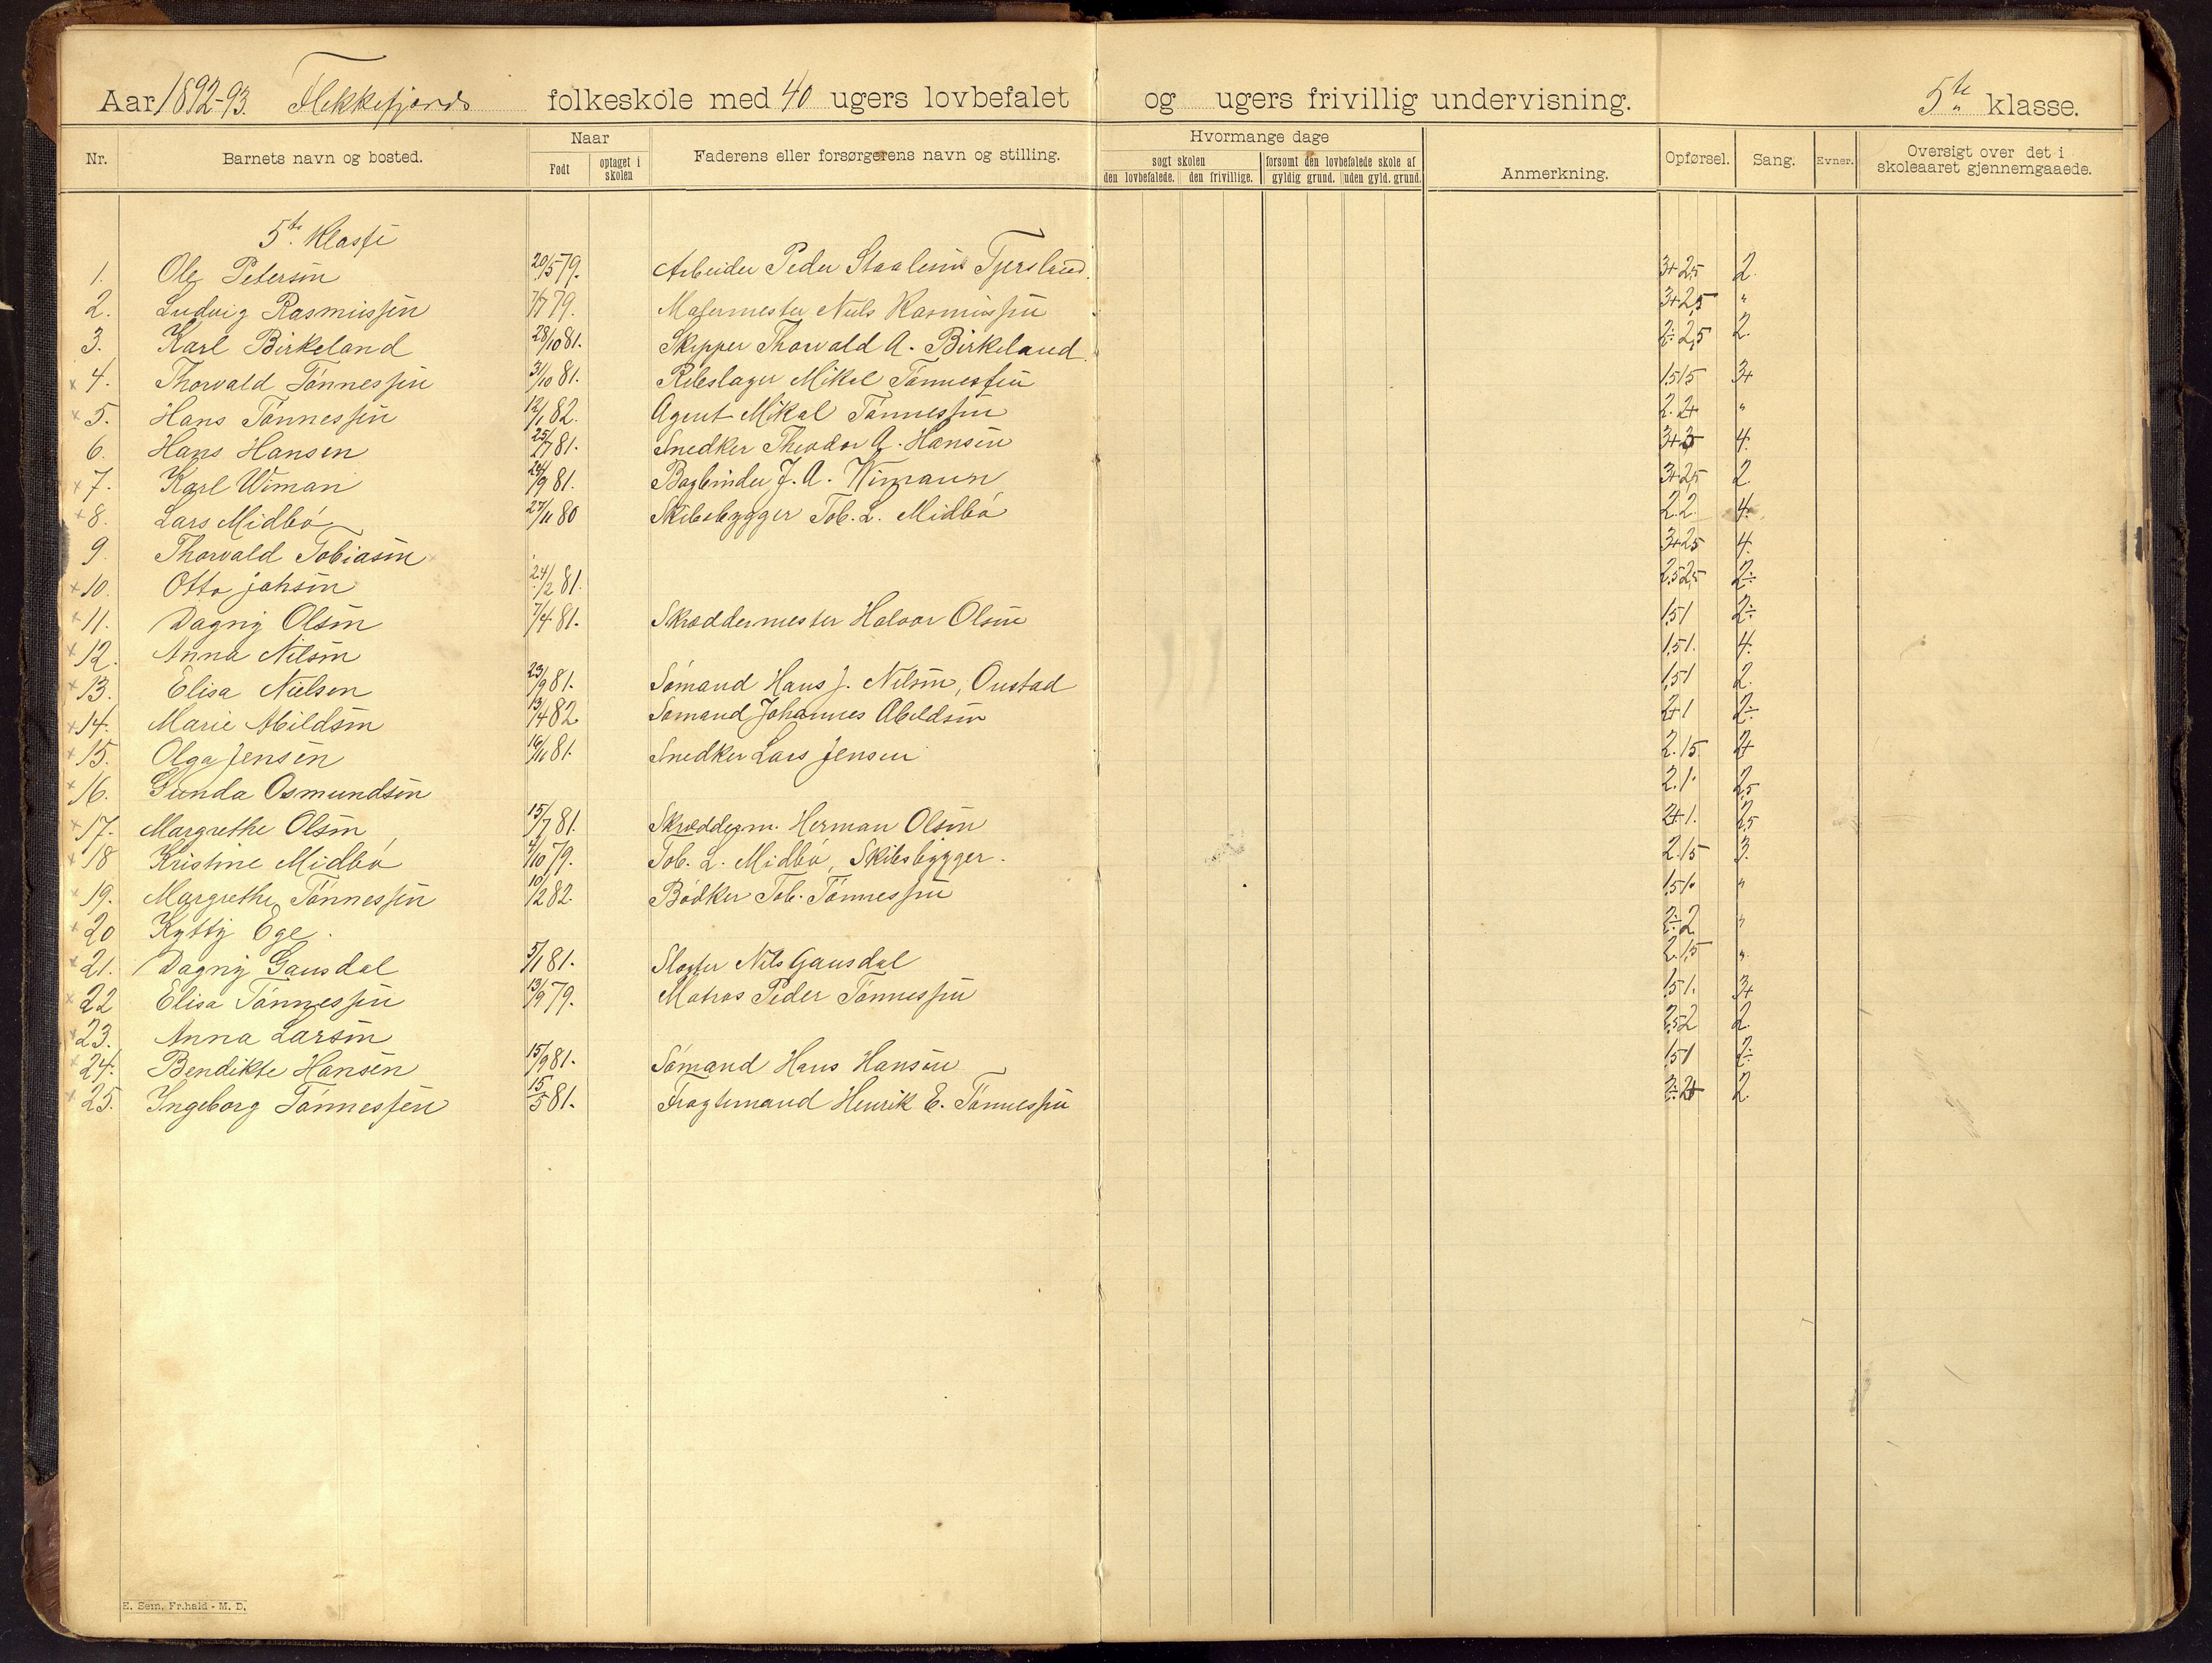 Aar 1892-93. Flekkefjords folkeskole med 40 ugers lovbefalet og ugers frivillig undervisning. 5te klasse.
Nr. Barnets navn og bosted. Naar Født optaget i skolen Faderens eller forsørgerens navn og stilling. Hvormange dage søgt skolen den lovbefalede. den frivillige. forsømt den lovbefalede skole af gyldig grund. uden gyld. grund. Anmerkning. Opførsel. Sang. Evner. Oversigt over det i skoleaaret gjennemgaaede.
5te Klasse
1. Ole Petersen 20/5 79. Arbeider Peder Staalesens Tjersland. 3+ 2,5 2.
2. Ludvig Rasmussen 7/7 79. Malermester Niels Rasmussen 3+ 2,5 "
3. Karl Birkeland 28/10 81. Skipper Thorvald A. Birkeland. 2÷ 2,5 2.
× 4. Thorvald Tönnessen 31/10 81. Rebslager Mikel Tönnessen 1,5 1,5 3+
× 5. Hans Tönnessen 12/1 82. Agent Mikal Tönnessen 2. 2+ "
6. Hans Hansen 25/7 81. Snedker Theodor A. Hansen 3+ 3 4.
× 7. Karl Wiman 24/9 81. Bogbinder J. A. Wimann 3+ 2,5 2.
× 8. Lars Midbö 27/11 80 Skibsbygger Tob. L. Midbö 2. 2. 4.
9. Thorvald Tobiasen 3+ 2,5 4.
× 10. Otto Johsen 24/2 81. 2,5 2,5 2÷
× 11. Dagny Olsen 7/4 81. Skræddermester Halvor Olsen 1,5 1 2÷
× 12. Anna Nilsen 1,5 1. 4.
× 13. Elisa Nielsen 23/9 81. Sömand Hans J. Nilsen, Oustad 1,5 1 2.
× 14. Marie Abildsen 13/4 82 Sömand Johannes Abildsen 2+ 1 2÷
× 15. Olga Jensen 16/11 81. Snedker Lars Jensen 2. 1,5 2+
× 16. Gunda Osmundsen 2. 1. 2,5
× 17. Margrethe Olsen 15/7 81. Skrædderm. Herman Olsen 2+ 1. 2,5
× 18 Kristine Midbö 4/10 79. Tob. L. Midbö, Skibsbygger. 2. 1,5 3.
× 19. Margrethe Tönnessen 10/2 82. Bödker Tob. Tönnessen 1,5 1. "
× 20 Kytty Ege. 2÷ 2 "
× 21. Dagny Gausdal 5/1 81. Slagter Nils Gausdal 2. 1,5 "
× 22 Elisa Tönnessen 13/9 79. Matros Peder Tönnessen 1,5 1. 3+
× 23. Anna Larsen 2,5 2 2.
× 24. Bendikte Hansen 15/9 81. Sömand Hans Hansen 1,5 1 2÷
× 25. Ingeborg Tönnessen 15/5 81. Fragtemand Henrik E. Tönnessen 2÷ 2+ 2.
E. Sem, Fr.hald - M. D.